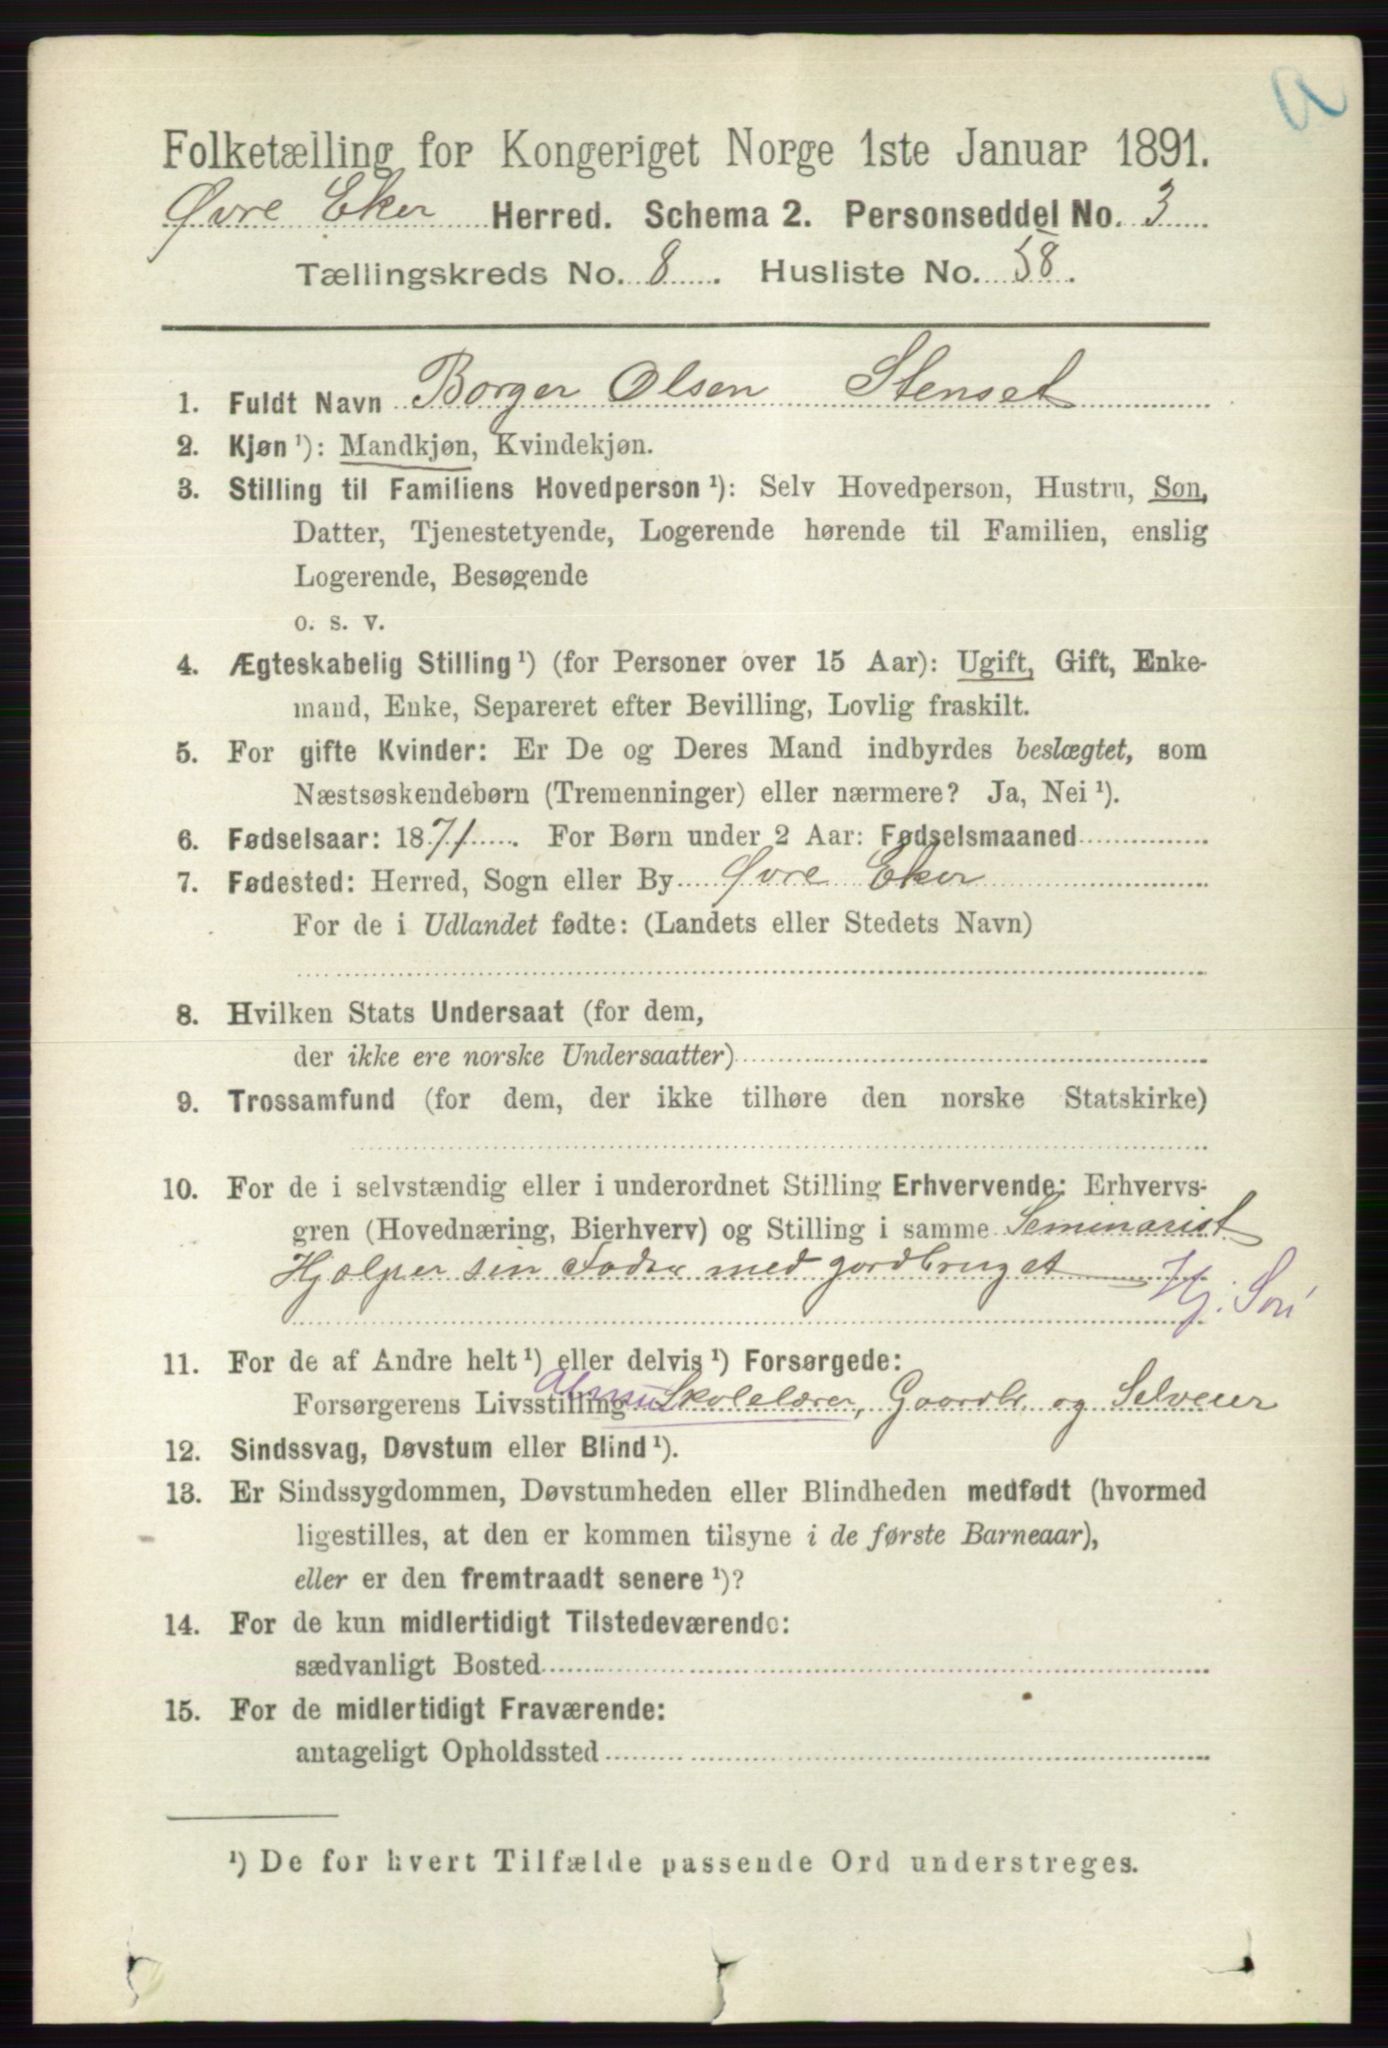 a
Folketælling for Kongeriget Norge 1ste Januar 1891.
Øvre Eker Herred. Schema 2. Personseddel No. 3
Tællingskreds No. 8. Husliste No. 58.
1. Fuldt Navn Borger Olsen Stenset
2. Kjøn ¹): Mandkjøn, Kvindekjøn.
3. Stilling til Familiens Hovedperson ¹): Selv Hovedperson, Hustru, Søn,
Datter, Tjenestetyende, Logerende hørende til Familien, enslig
Logerende, Besøgende
o. s. v.
4. Ægteskabelig Stilling ¹) (for Personer over 15 Aar): Ugift, Gift, Enke-
mand, Enke, Separeret efter Bevilling, Lovlig fraskilt.
5. For gifte Kvinder: Er De og Deres Mand indbyrdes beslægtet, som
Næstsøskendebørn (Tremenninger) eller nærmere? Ja, Nei ¹).
6. Fødselsaar: 1871. For Børn under 2 Aar: Fødselsmaaned
7. Fødested: Herred, Sogn eller By Øvre Eker
For de i Udlandet fødte: (Landets eller Stedets Navn)
8. Hvilken Stats Undersaat (for dem,
der ikke ere norske Undersaatter)
9. Trossamfund (for dem, der ikke tilhøre den norske Statskirke)
10. For de i selvstændig eller i underordnet Stilling Erhvervende: Erhvervs-
gren (Hovednæring, Bierhverv) og Stilling i samme Seminarist
Hjælper sin Fader med gardbruget
Hj. Søn
11. For de af Andre helt ¹) eller delvis ¹) Forsørgede:
Forsørgerens Livsstilling Skolelærer, Gaardbr. og Selveier
12. Sindssvag, Døvstum eller Blind ¹).
13. Er Sindssygdommen, Døvstumheden eller Blindheden medfødt (hvormed
ligestilles, at den er kommen tilsyne i de første Barneaar),
eller er den fremtraadt senere ¹)?
14. For de kun midlertidigt Tilstedeværende:
sædvanligt Bosted
15. For de midlertidigt Fraværende:
antageligt Opholdssted
¹) De for hvert Tilfælde passende Ord understreges.